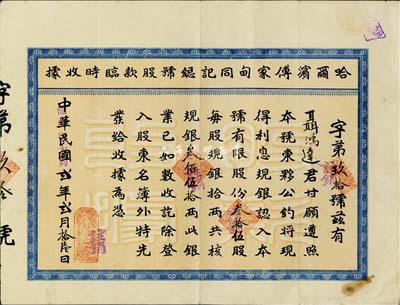 哈爾濱傅家甸同記總號股款臨時收據
字第玖拾號茲有
聶鴻達君甘願遵照
本號東夥公約將現
得利息現銀認入本
號有限股份叁拾伍股
每股現銀拾兩共核
現銀叁佰伍拾兩此銀
業已如數收訖除登
入股東名簿外特先
業給收據為憑
中華民國貳年貳月拾陸日
字第玖拾號